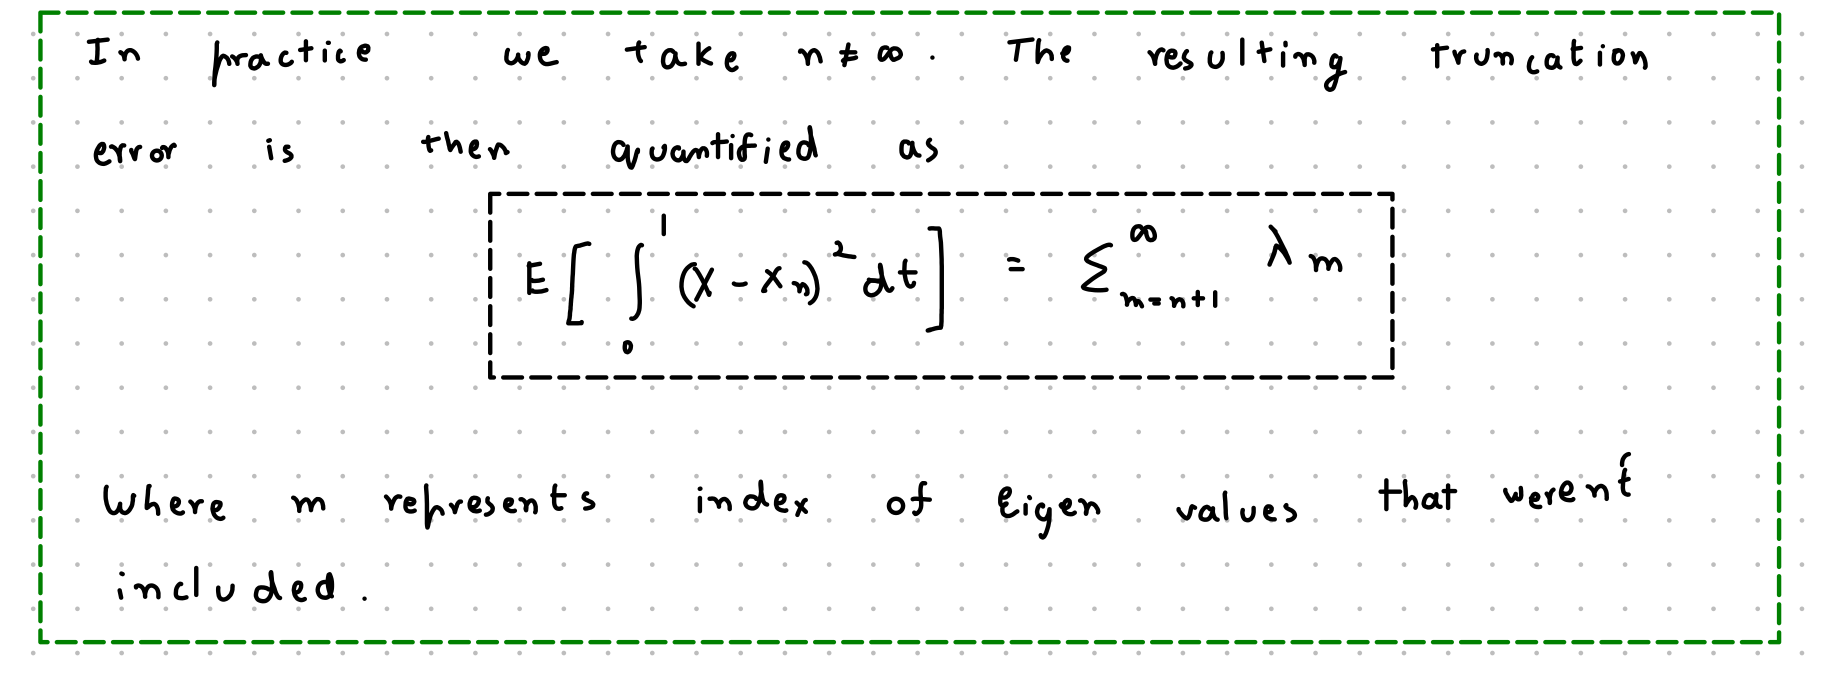 In practice we take n ≠ ∞. The resulting truncation
error is then quantified as
E[∫₀¹ (X - Xₙ)² dt] = Σ_{m=n+1}^{∞} λₘ
Where m represents index of Eigen values that weren't
included.